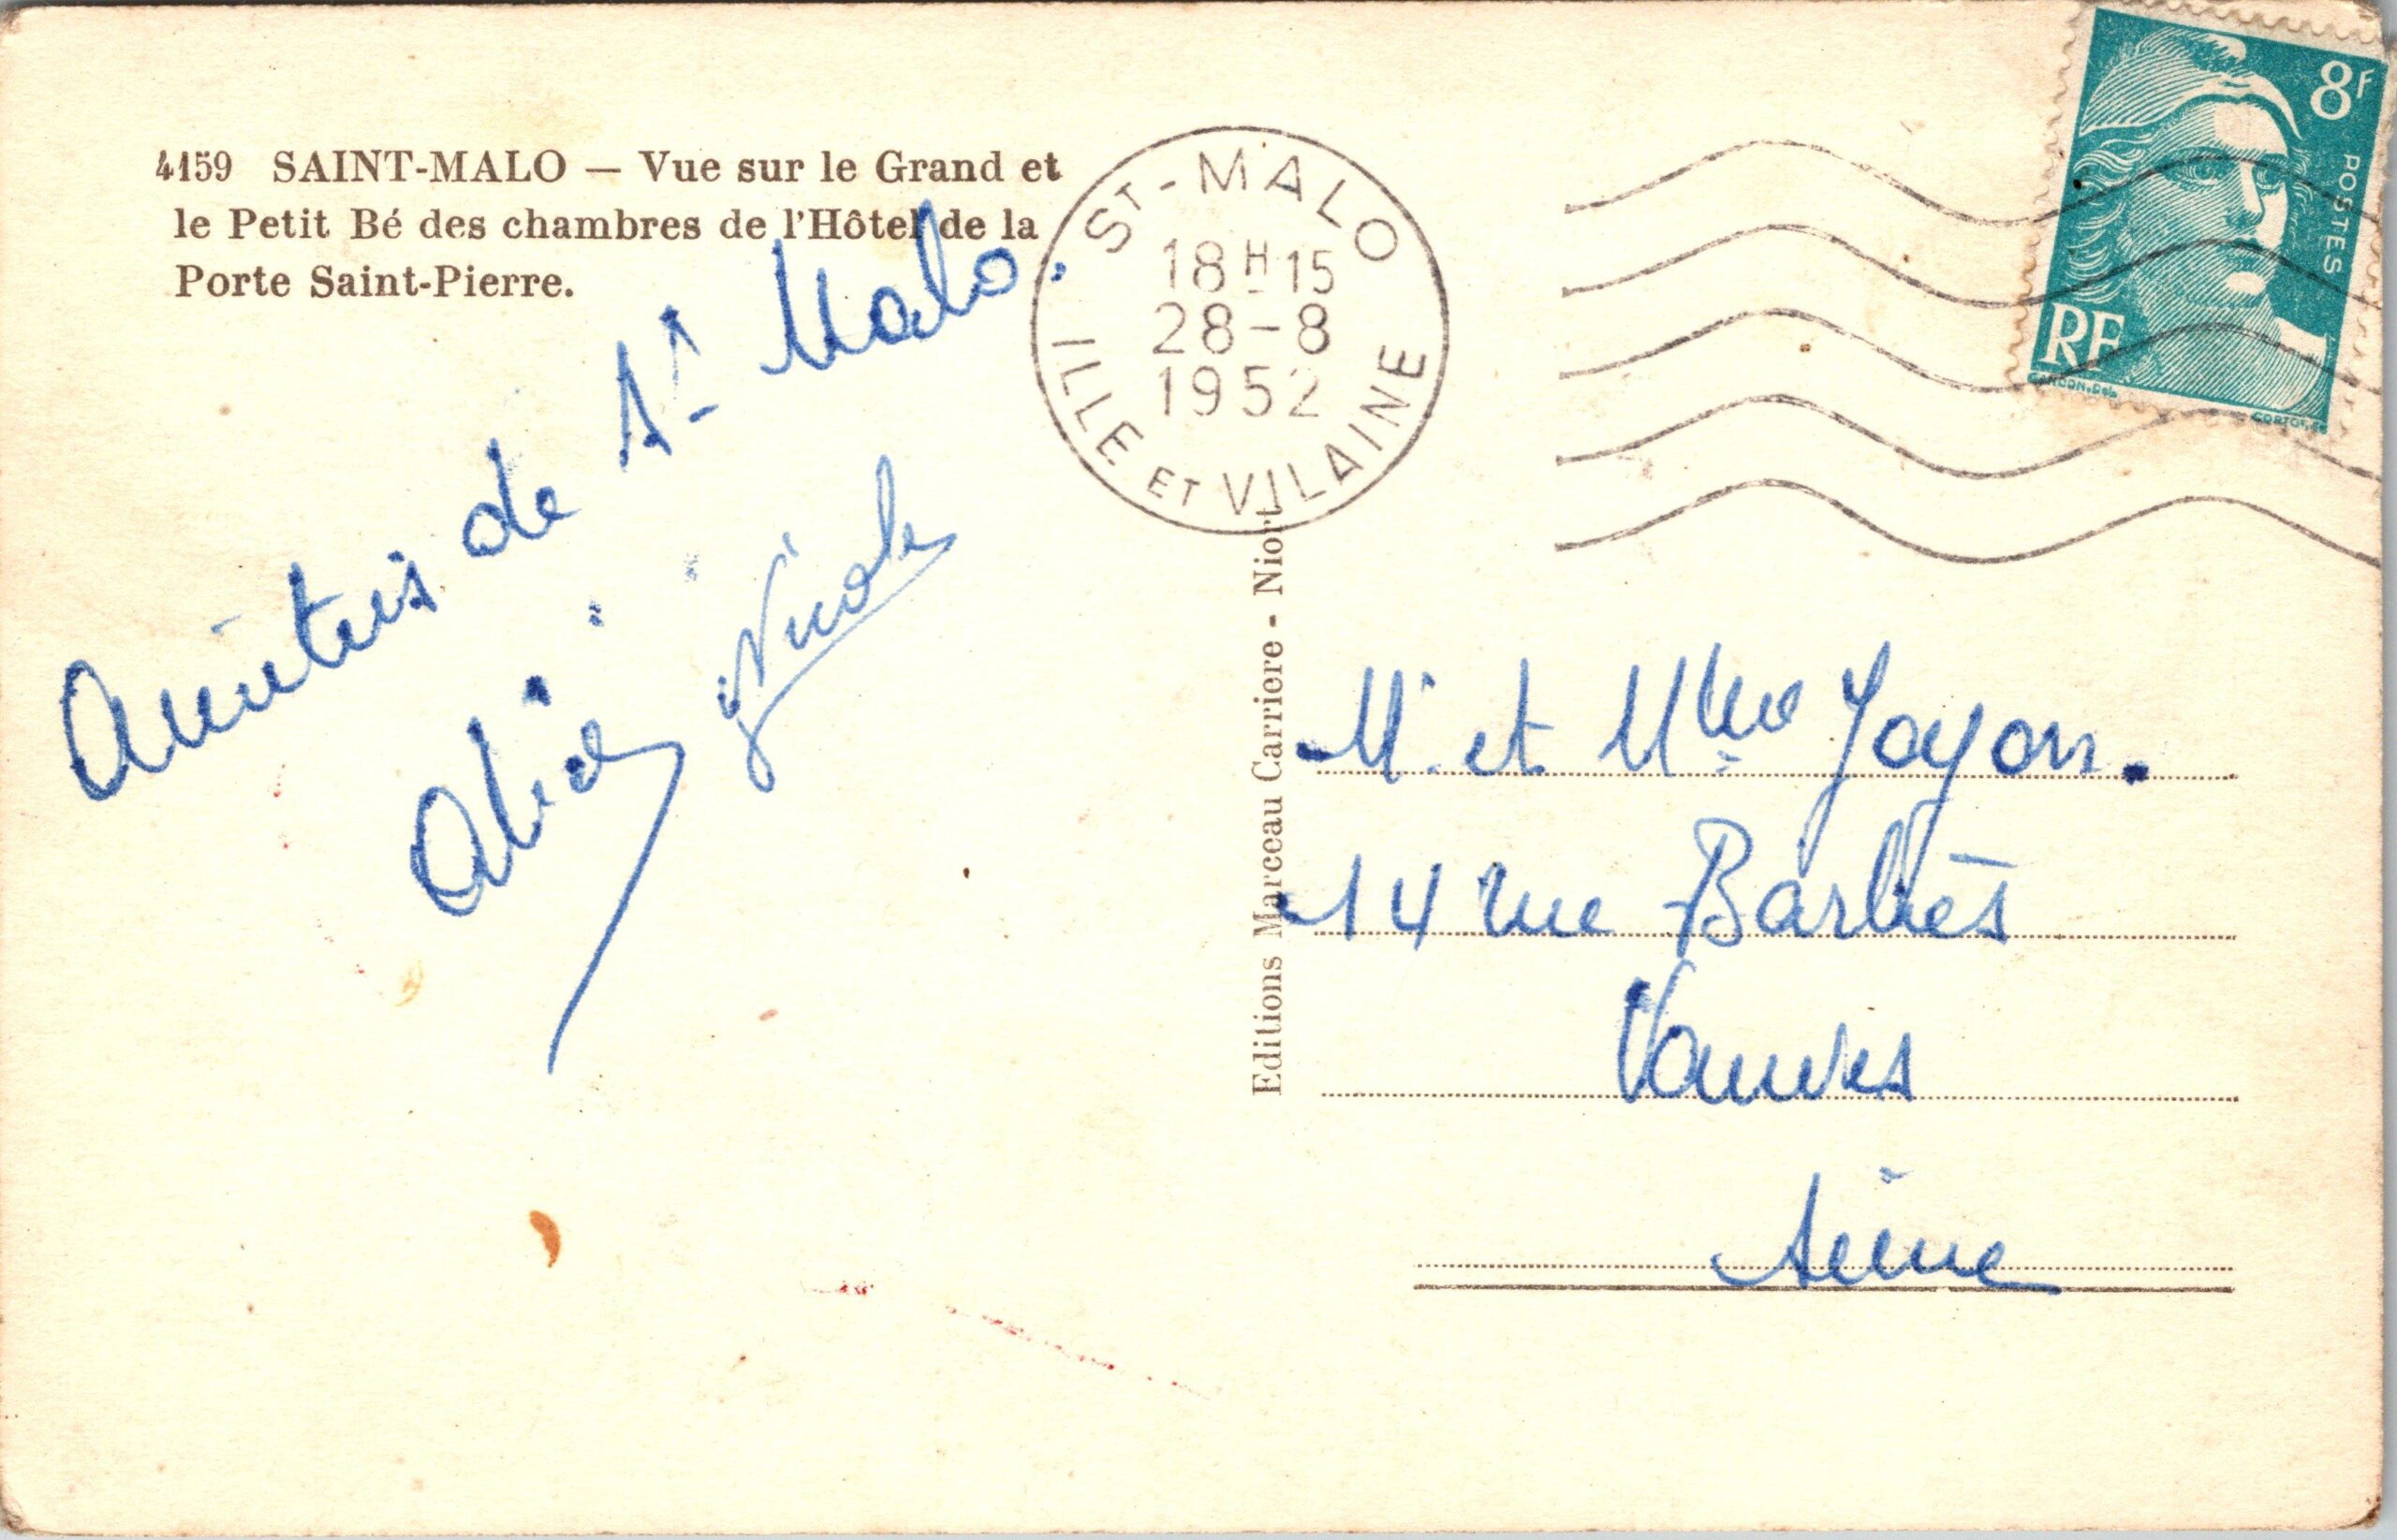 4159 SAINT-MALO — Vue sur le Grand et
le Petit Bé des chambres de l'Hôtel de la
Porte Saint-Pierre.
ST-MALO
18H15
28-8
1952
ILLE ET VILAINE
8F
POSTES
RF
GANDON. DEL.
CORTOT. SC
Amitiés de St Malo.
Nicole
Editions Marceau Carriere - Niort
Mr et Mme Joyon.
14 rue Barbès
Vanves
Seine